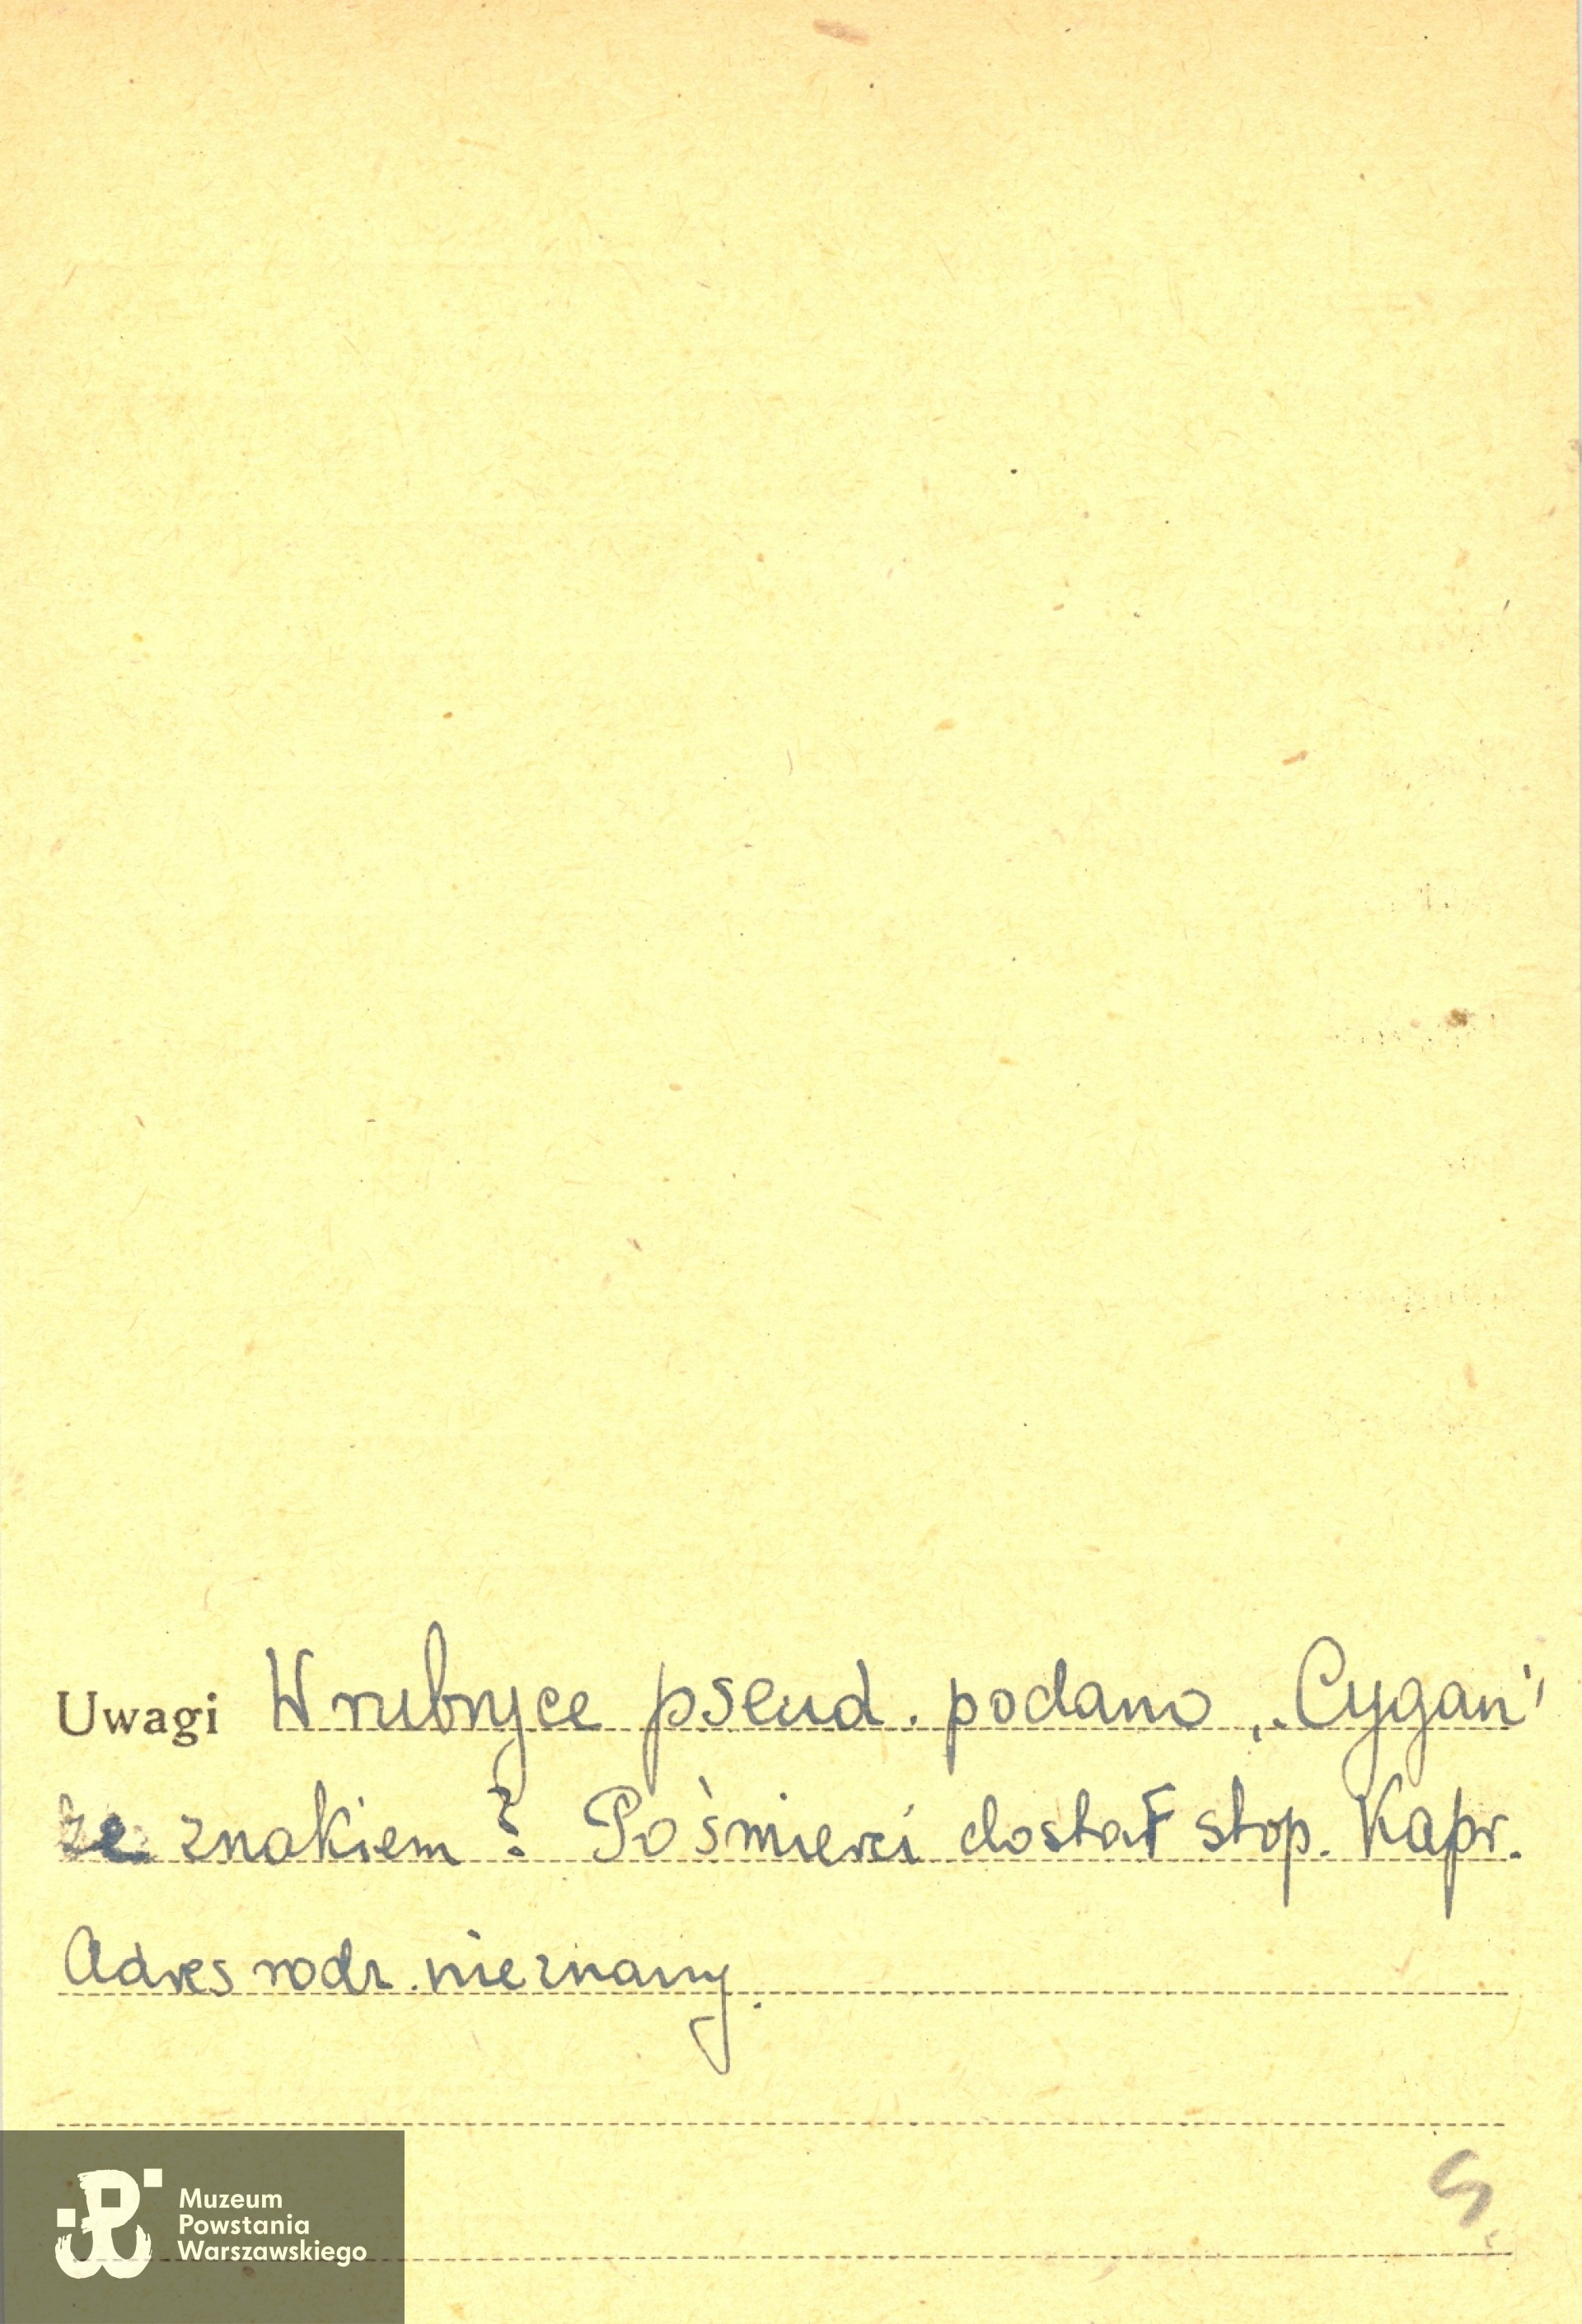 Uwagi W rubryce pseud. podano „Cygan"
ze znakiem ? Po śmierci dostał stop. Kapr.
Adres rodz. nieznany.
S.
Muzeum
Powstania
Warszawskiego